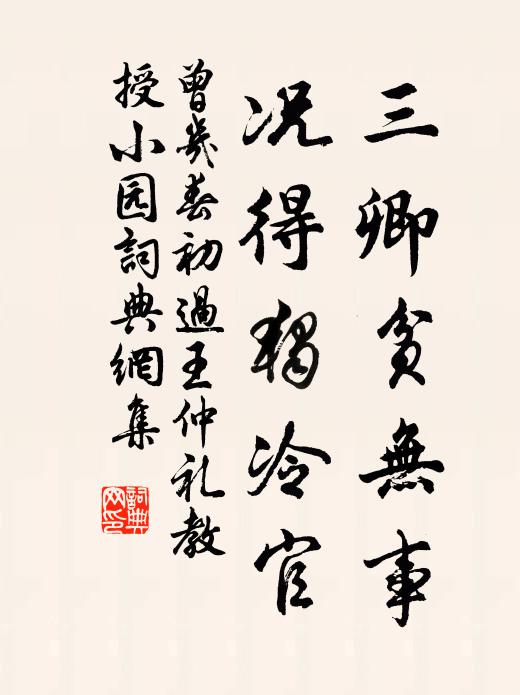 三卿貧無事
况得獨冷官
曾幾春初過王仲礼教
授小园詞典網集
詞典网印